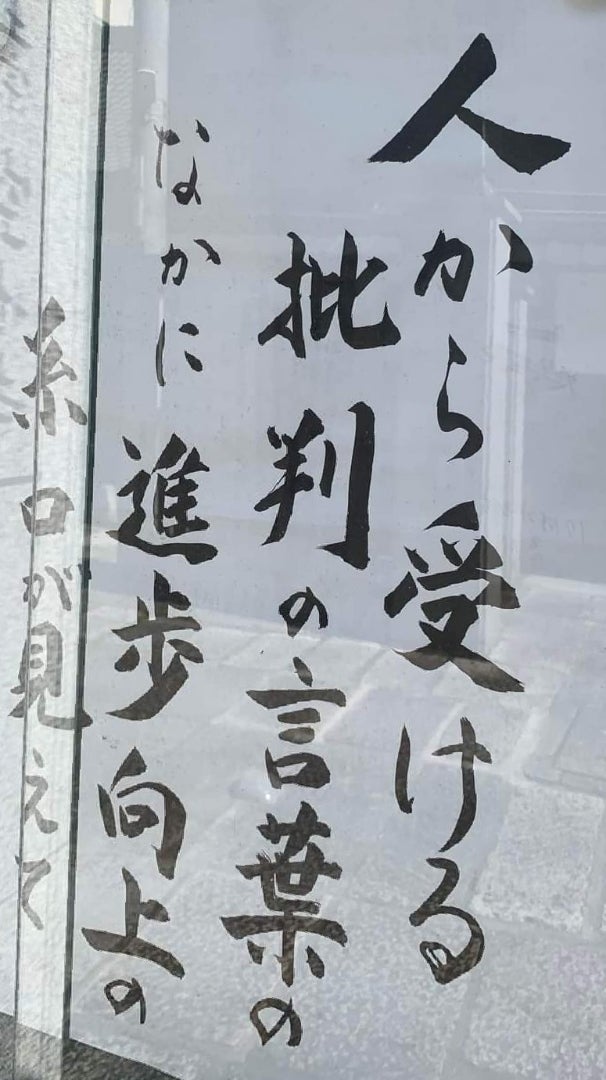 人から受ける
批判の言葉の
なかに
進歩向上の
糸口が見えて